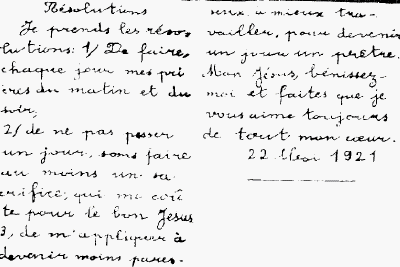 Résolutions
Je prends les réso-
lutions: 1/ De faire,
chaque jour mes pri
ères du matin et du
soir,
2/ de ne pas passer
un jour, sans faire
au moins un sa
crifice, qui me coû
te pour le bon Jésus
3, de m'appliquer à
devenir moins pares-
seux à mieux tra-
vailler, pour devenir
un jour un prêtre.
Mon Jésus, bénissez-
moi et faites que je
vous aime toujours
de tout mon cœur.
22 Mai 1921